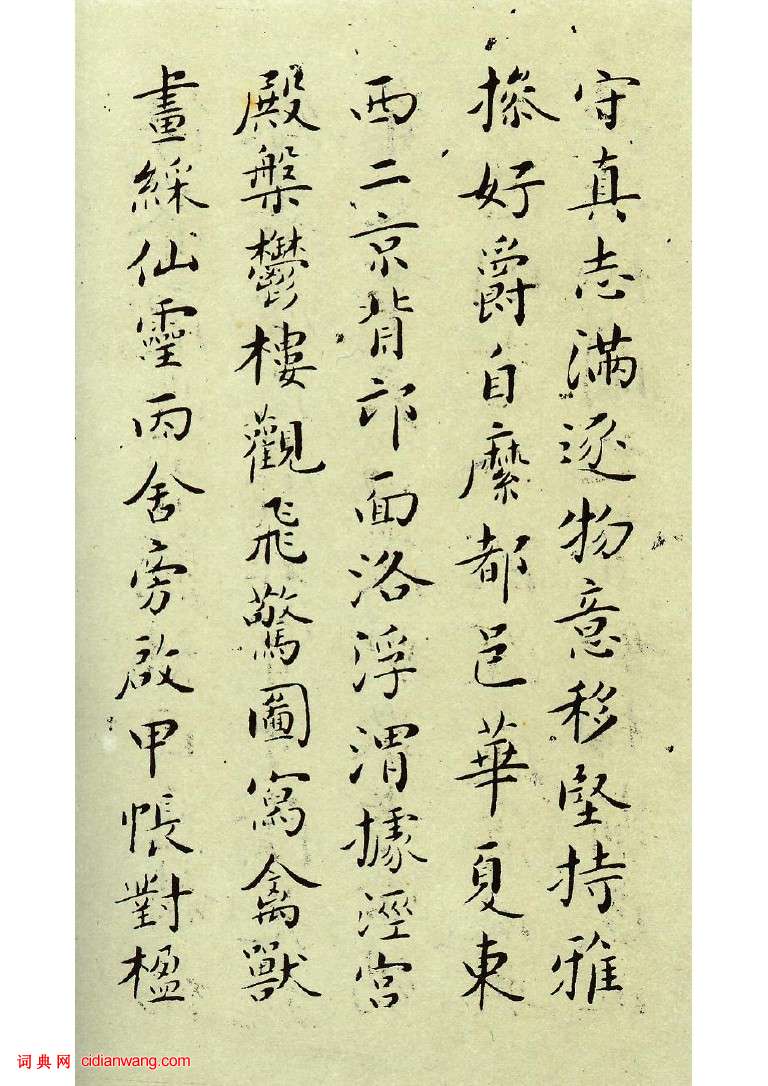 守真志滿逐物意移堅持雅
操好爵自縻都邑華夏東
西二京背邙面洛浮渭據涇宮
殿盤鬱樓觀飛驚圖寫禽獸
畫綵仙靈丙舍旁啟甲帳對楹
词典网 cidianwang.com